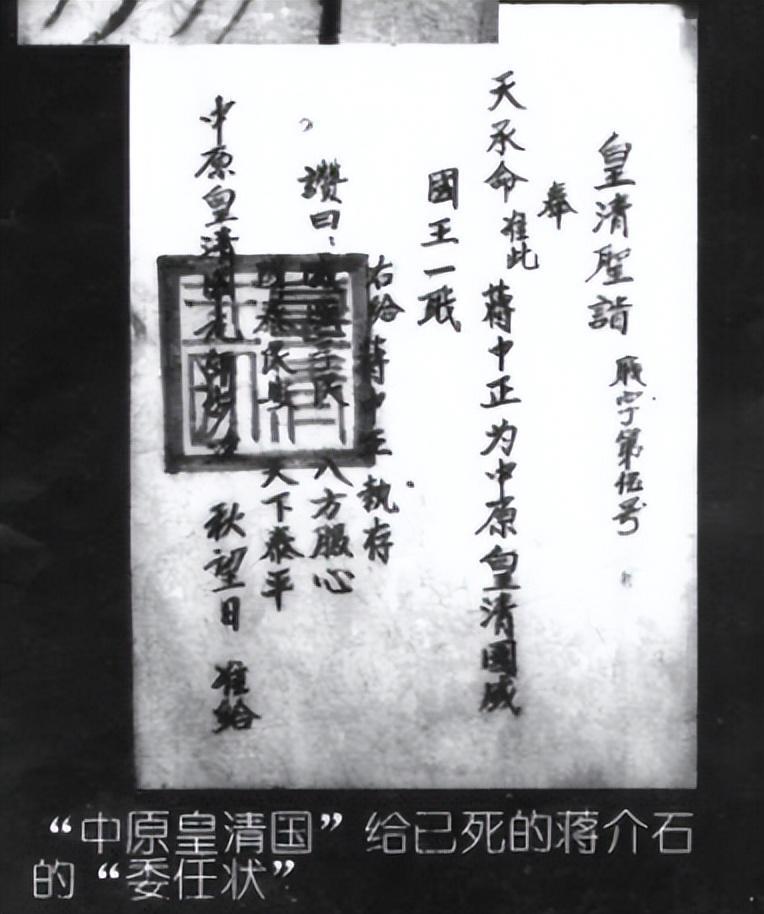 皇清聖詣 展字第伍号
奉
天承命准此 蒋中正为中原皇清國威
國王一戝
右给蒋中正 執存
讚曰： 八方服心
國泰民 天下泰平
中原皇清國元 秋望日 准给
“中原皇清国”给已死的蒋介石
的“委任状”